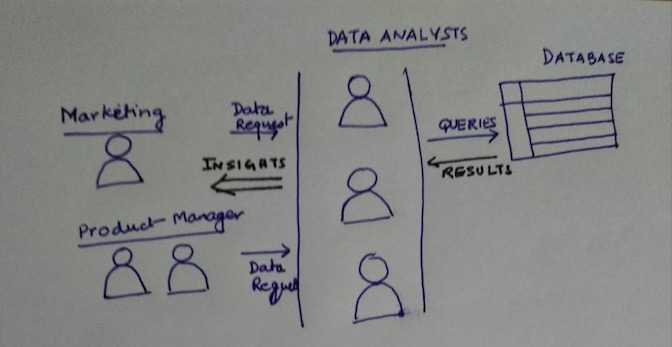 DATA ANALYSTS
DATABASE
Marketing
Data
Request
QUERIES
INSIGHTS
RESULTS
Product Manager
Data
Request